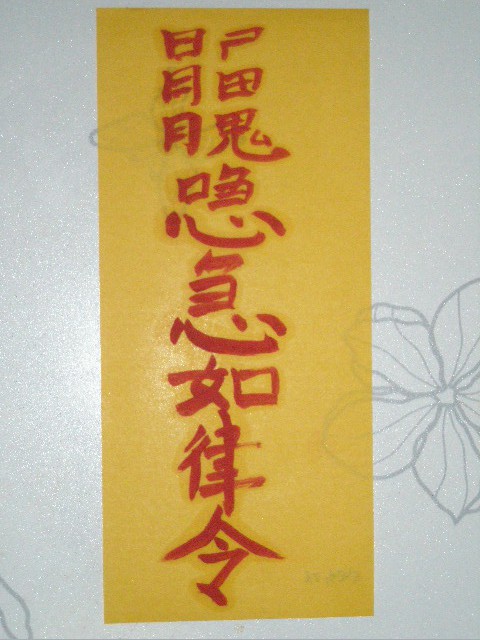 日尸
月田
月鬼
喼
急
如
律
令